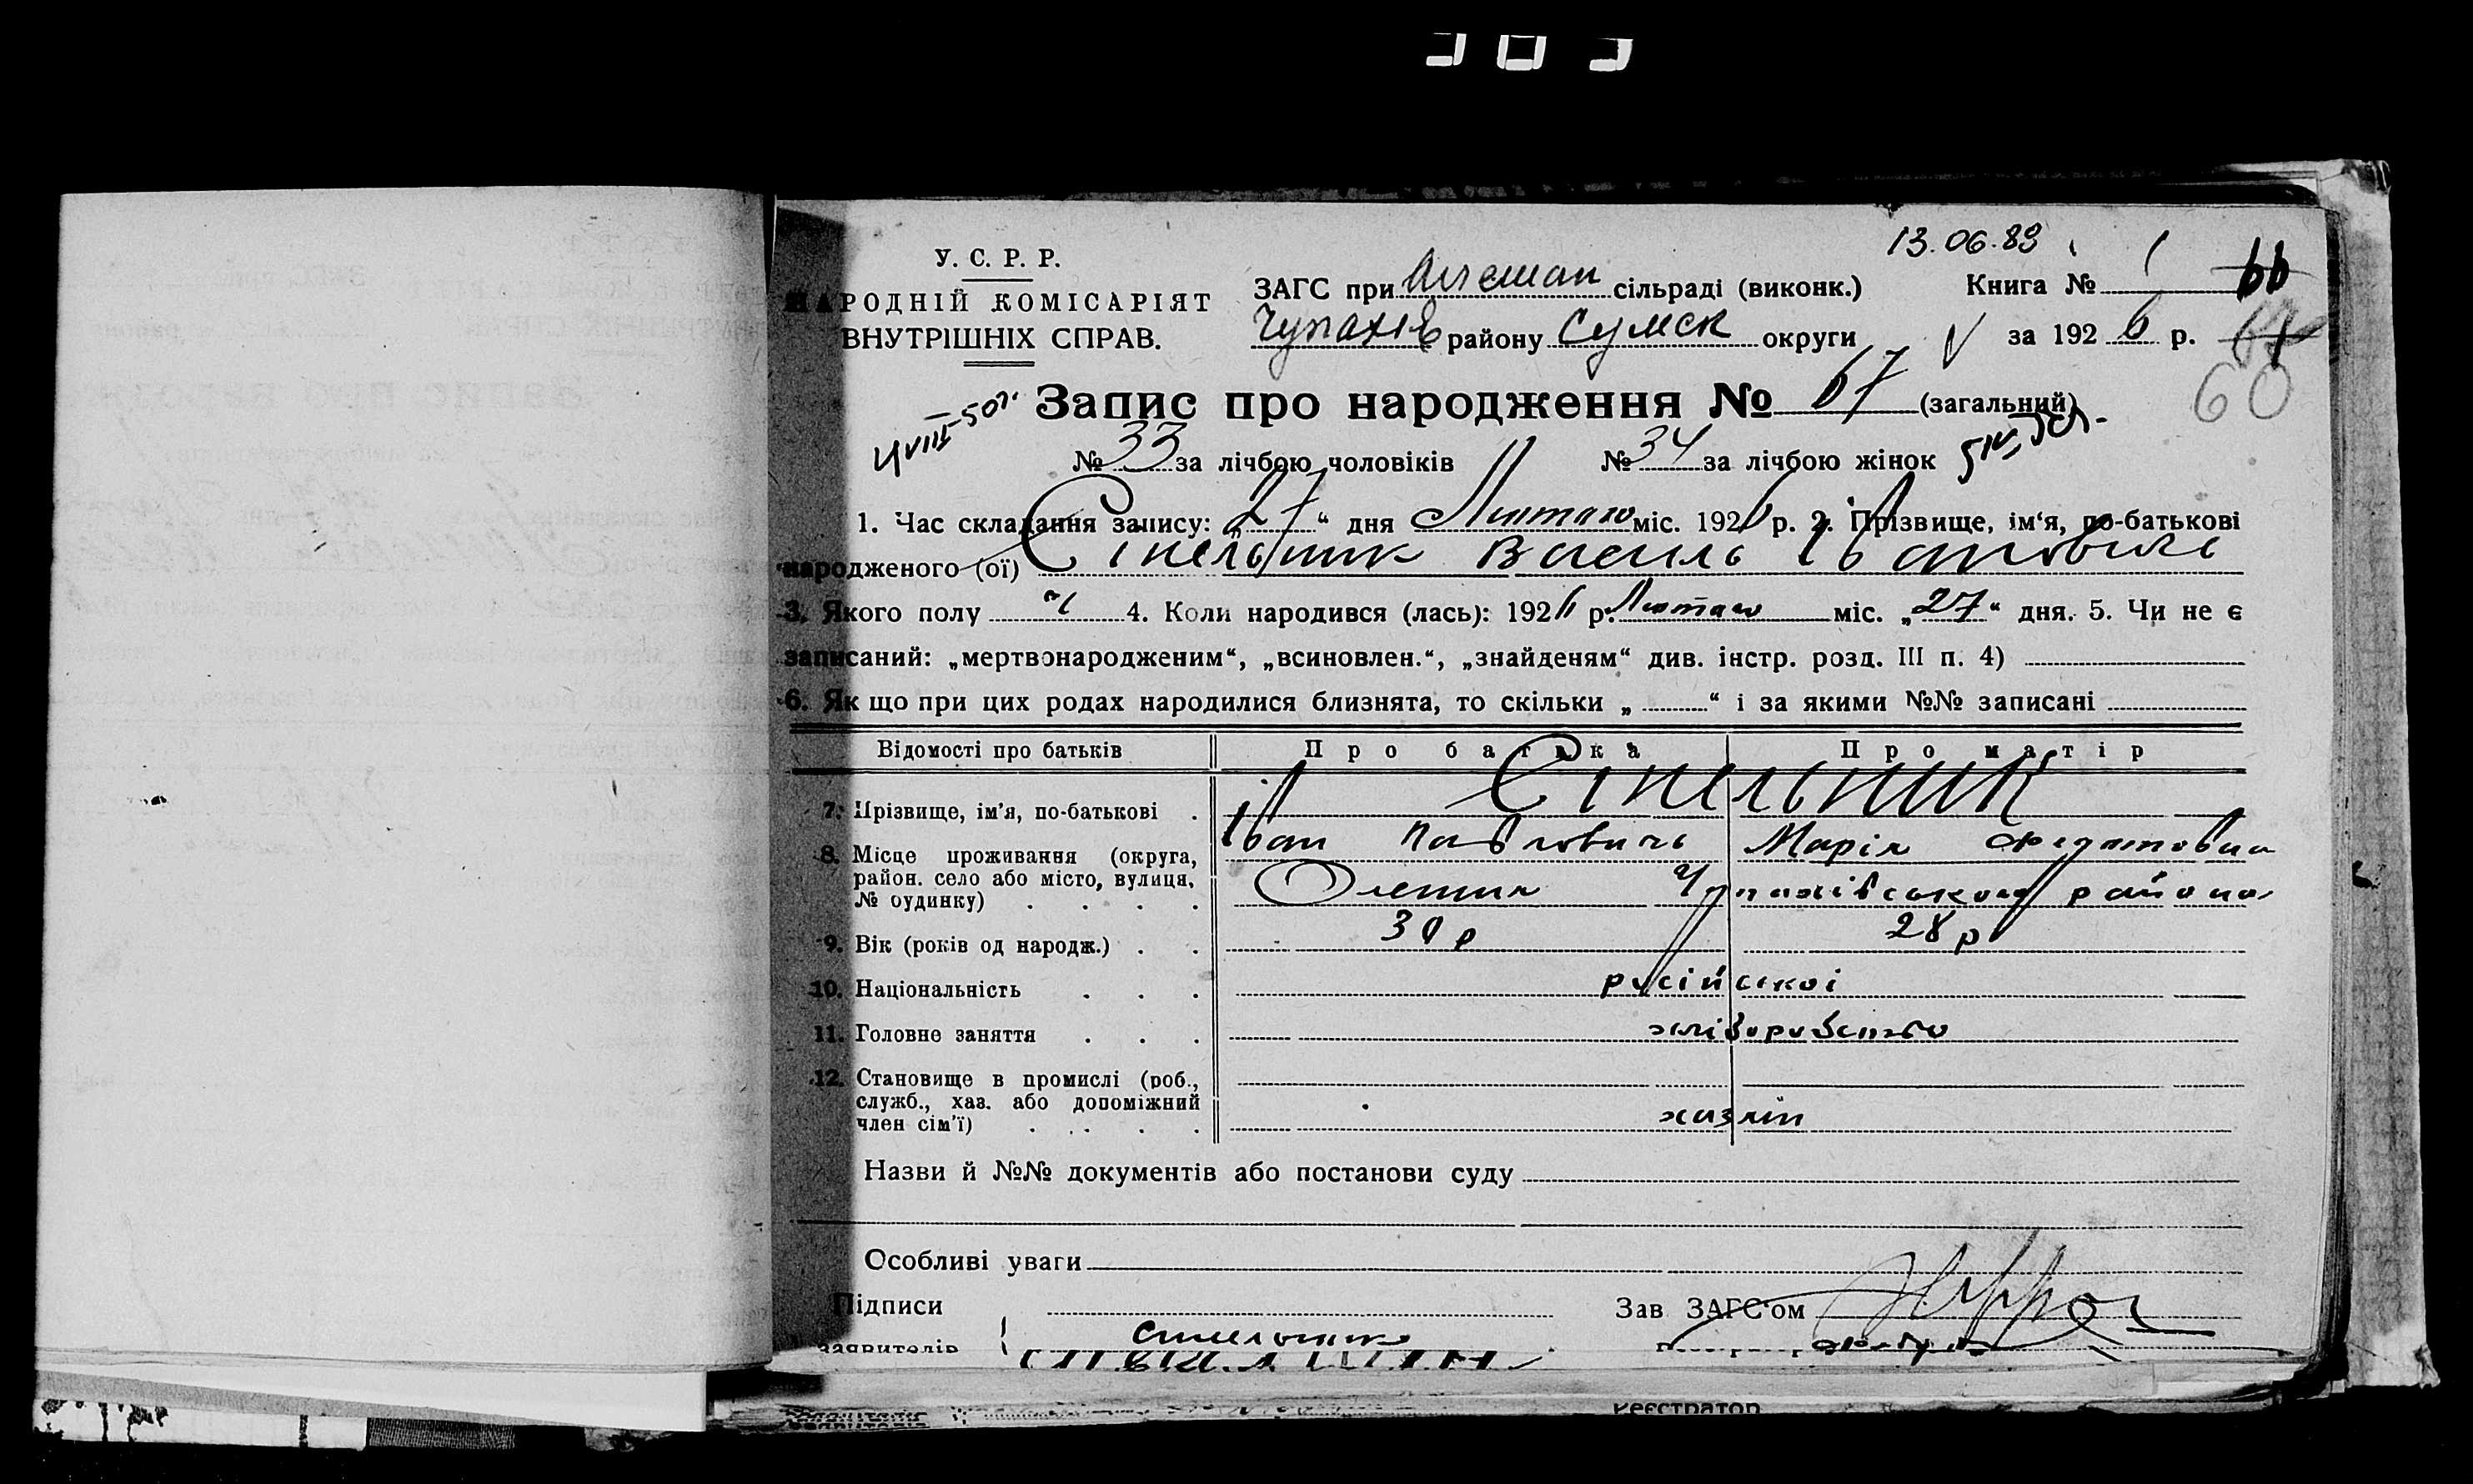 13.06.89
У. С. Р. Р.
НАРОДНІЙ КОМІСАРІЯТ
ВНУТРІШНІХ СПРАВ.
ЗАГС при сільраді (виконк.)
Книга № 1 66
району Сумск округи
за 1926 р.
60
Запис про народження № 67 (загальний)
№ 33 за лічбою чоловіків № 34 за лічбою жінок
1. Час складання запису: „27“ дня Лютого міс. 1926 р. 2. Прізвище, ім‘я, по-батькові
народженого (ої) Сінельник Василь Івановичь
3. Якого полу ч 4. Коли народився (лась): 1926 р. Лютого міс. „27“ дня. 5. Чи не є
записаний: „мертвонародженим“, „всиновлен.“, „знайденям“ див. інстр. розд. III п. 4)
6. Як що при цих родах народилися близнята, то скільки „ “ і за якими №№ записані
Відомості про батьків Про батька Про матір
Сінельник
7. Прізвище, ім’я, по-батькові Іван Павловичь Марія Федотовна
8. Місце проживання (округа, район. село або місто, вулиця, № будинку) Олешня Чупахівського району
9. Вік (років од народж.) 28 р
10. Національність русійської
11. Головне заняття хліборобство
12. Становище в промислі (роб., служб., хаз. або допоміжний член сім’ї) хазяїн
Назви й №№ документів або постанови суду
Особливі уваги
Підписи Зав ЗАГС‘ом
заявителів Синельник
Реєстратор